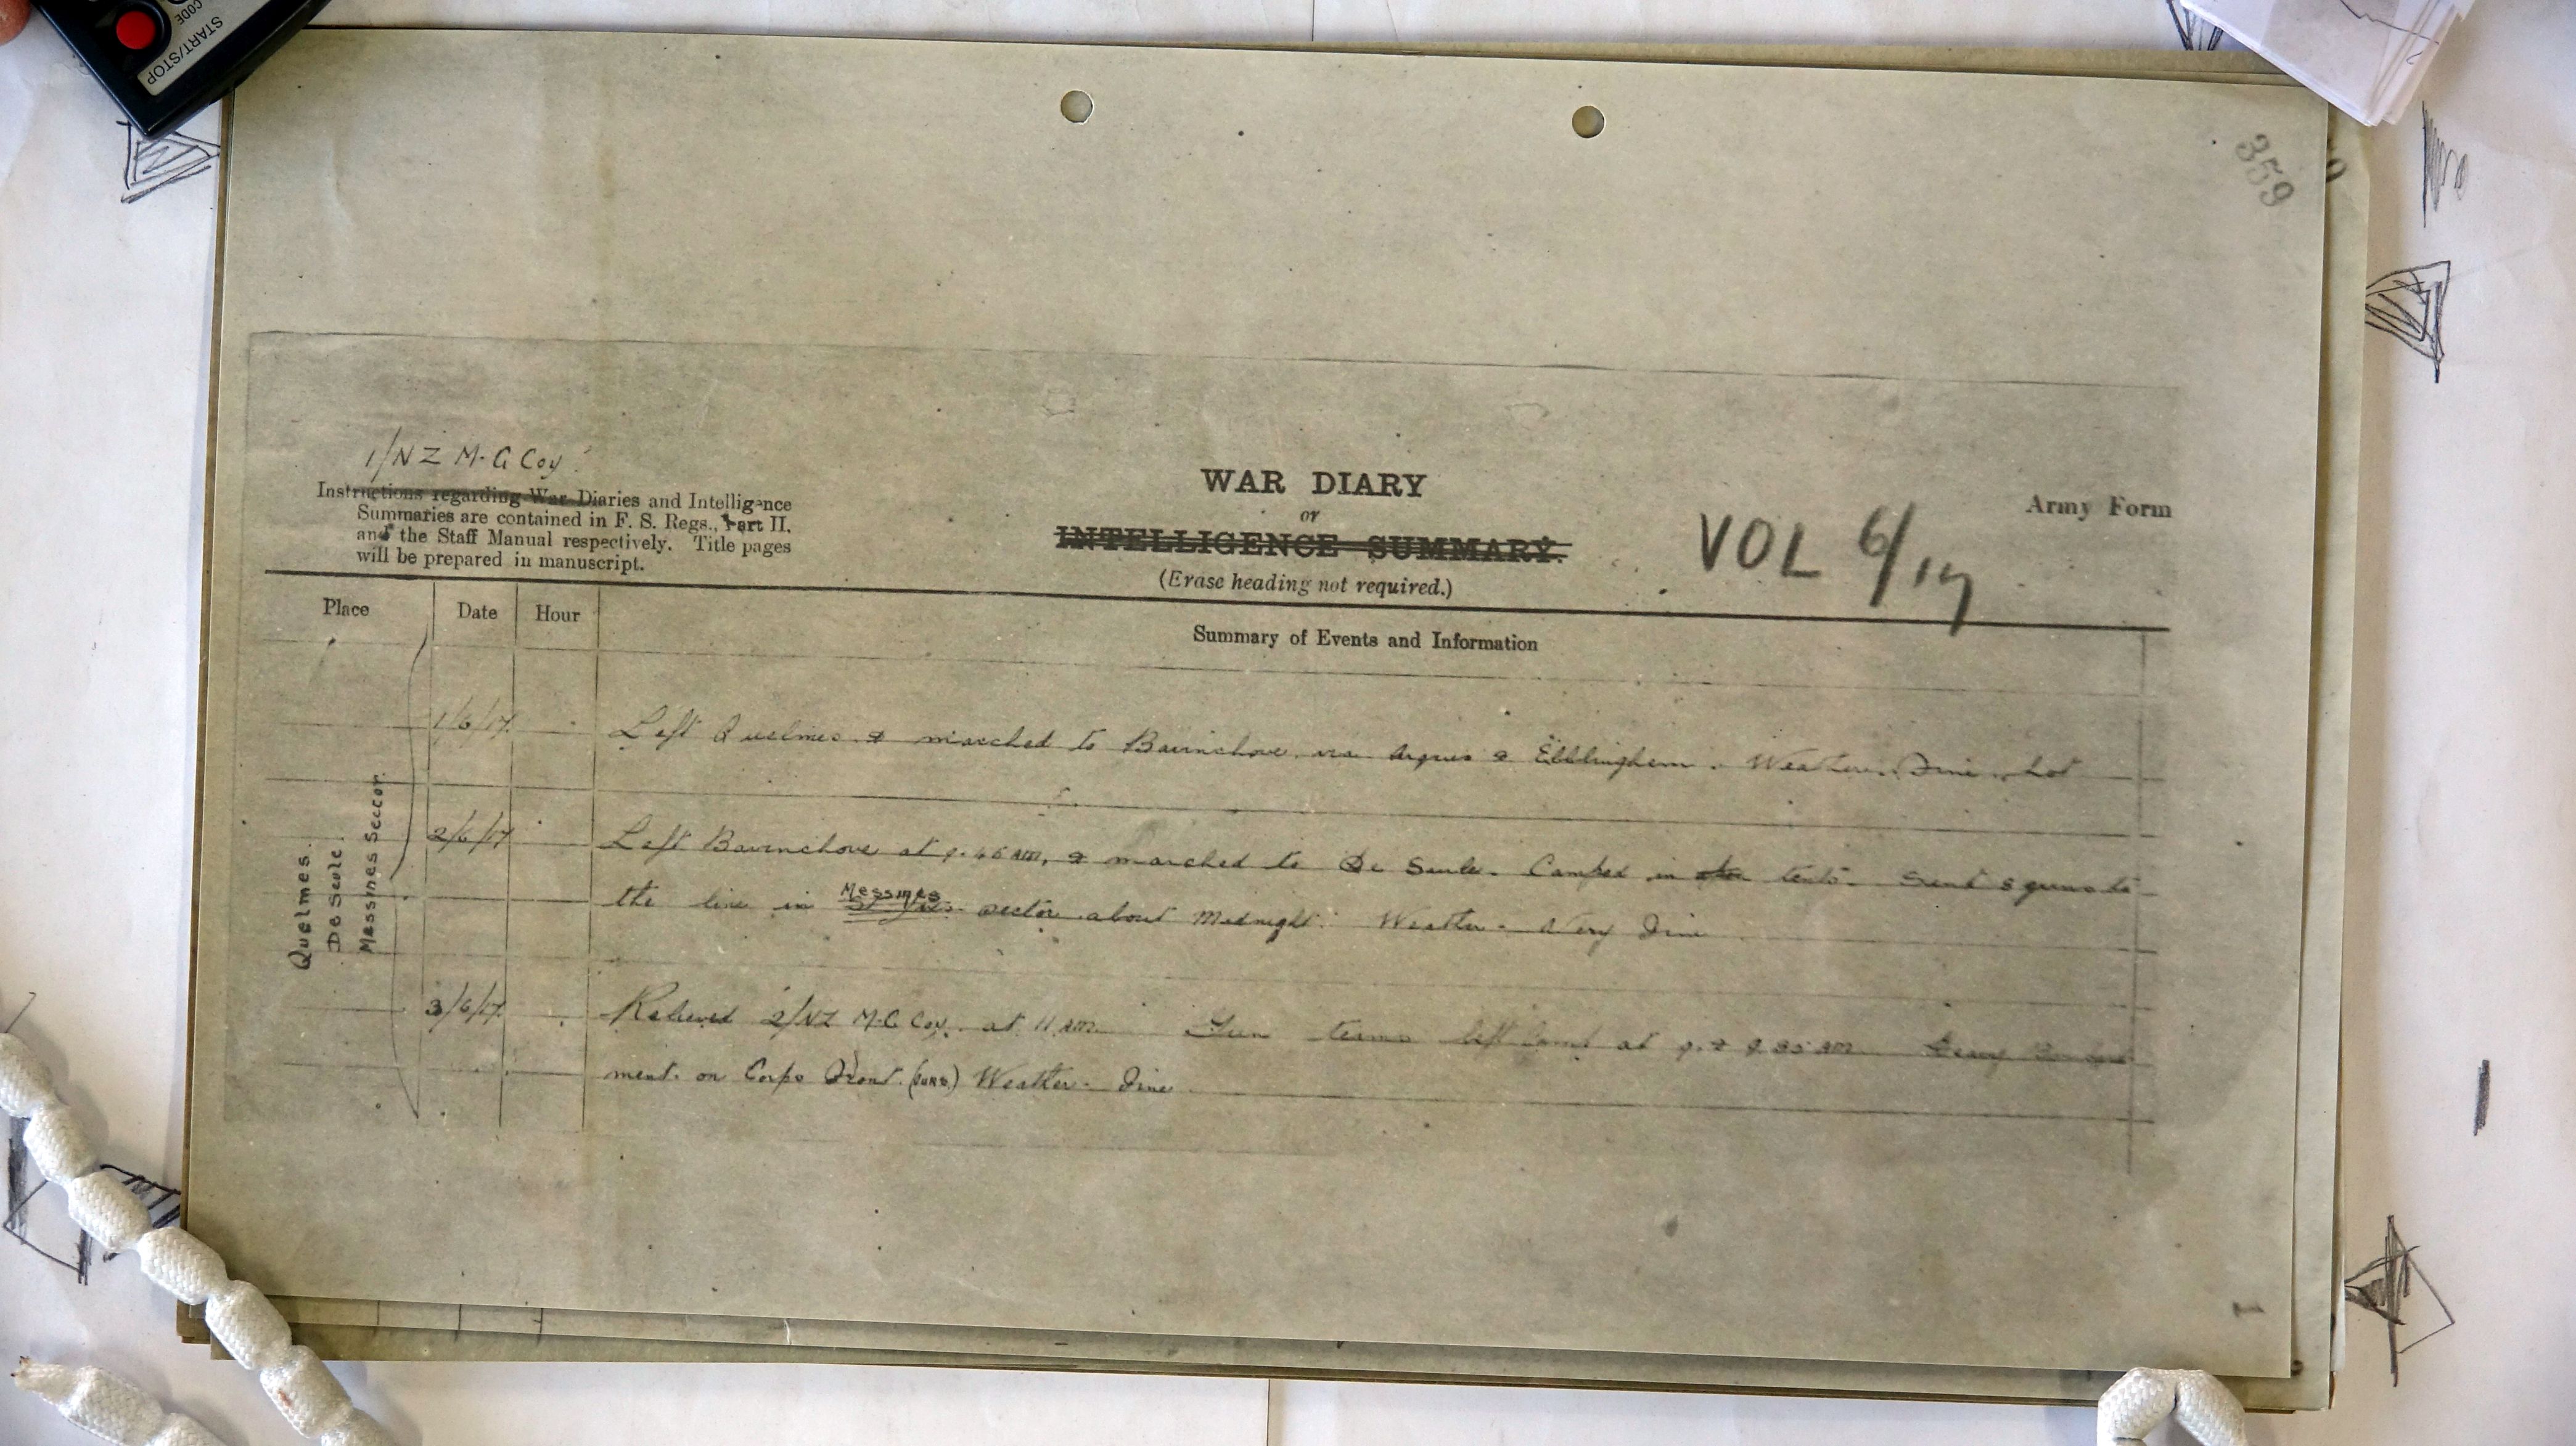 START/STOP
CODE
359
1/NZ M.G Coy.
Instructions regarding War Diaries and Intelligence
Summaries are contained in F. S. Regs., Part II.
and the Staff Manual respectively. Title pages
will be prepared in manuscript.
WAR DIARY
or
INTELLIGENCE SUMMARY.
(Erase heading not required.)
VOL 6/17
Army Form
Place
Date
Hour
Summary of Events and Information
Quelmes.
De Seule.
Messines Seccor.
1/6/17. Left Quelmes & marched to Bavinchove via Arques & Ebblinghem. Weather. Fine. hot
2/6/17 Left Bavinchove at 9.45 AM, & marched to De Seule. Camped in tents. Sent 8 guns to
the line in Messines sector about Midnight. Weather - Very Fine
3/6/17. Relieved 2/NZ M.G Coy. at 11 AM. Gun teams left camp at 9. & 9.35 AM Heavy
ment. on Corps Front. Weather - Fine
1